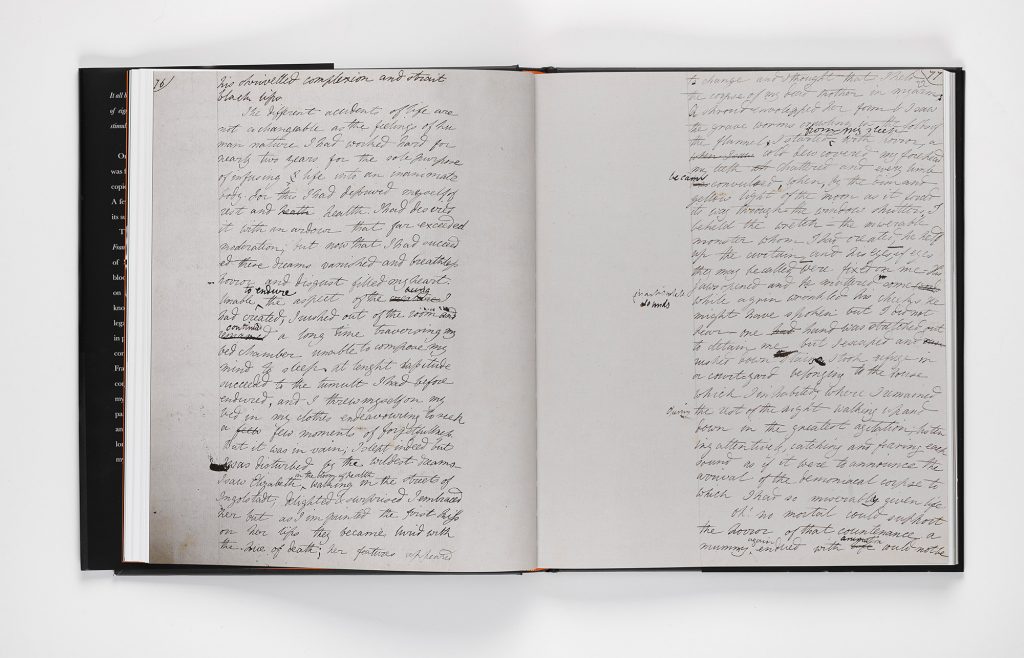 76
his shrivelled complexion and strait
black lips
The different accidents of life are
not so changeable as the feelings of hu
man nature I had worked hard for
nearly two years for the sole purpose
of infusing life into an inanimate
body. For this I had deprived myself of
rest and heath health. I had desired
it with an ardour that far exceeded
moderation; but now that I had succeed
ed these dreams vanished and breathless
horror and disgust filled my heart.
to endure being
Unable the aspect of the I
had created, I rushed out of the room and
continued
a long time traversing my
bed chamber unable to compose my
mind to sleep. at lenght lassitude
succeed to the tumult I had before
endured, and I threw myself on my
bed in my clothes endeavouring to seek
a few moments of forgetfulness.
But it was in vain; I slept indeed but
I was disturbed by the wildest dreams
in the bloom of health
I saw Elizabeth walking in the streets of
Ingolstadt; delighted & surprised I embraced
her but as I imprinted the first kiss
on her lips they became livid with
the hue of death; her features appeared
77
to change and I thought that I held
the corpse of my dead mother in my arms
A shroud enveloped her form & I saw
the grave worms crawling in the folds of
from my sleep
the flannel. I started with horror, a
cold dew covered my forehead
my teeth chattered and every limb
became
convulsed, when, by the dim and
yellow light of the moon as it forced
its way through the window shutters, I
beheld the wretch – the miserable
monster whom I had created. he held
up the curtain and his eyes if eyes
they may be called were fixed on me. His
jaws opened and he muttered some
inarticulate
sounds
while a grin wrinkled his cheeks. he
might have spoken but I did not
hear – one hand was stretched out
to detain me but I escaped and
rushed down stairs. I took refuge in
a court yard belonging to the house
which I inhabited, where I remained
during
the rest of the night walking up and
down in the greatest agitation; listen
ing attentively, catching and fearing each
sound as if it were to announce the
arrival of the demoniacal corpse to
which I had so miserably given life
Oh! no mortal could support
the horror of that countenance a
again animation
mummy endued with could not be
It all b
of rig
stimul
was f
copie
A fe
its su
of
bloo
on
kno
lega
in p
con
Fra
cou
my
pa
an
lo
my